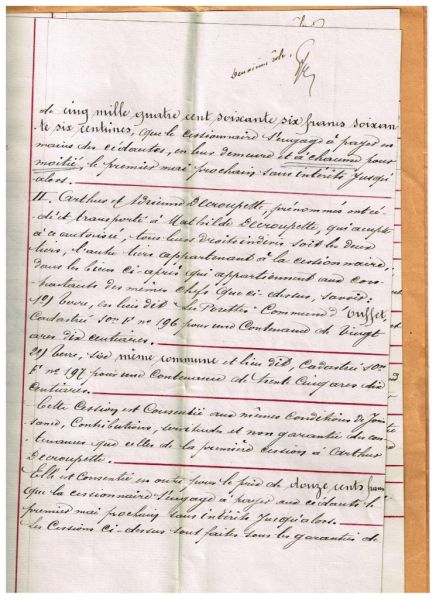 Deuxième rôle
de cinq mille quatre cent soixante six francs soixan
te six centimes, que le cessionnaire s'engage à payer en
mains des cédantes, en leur demeure et à chacune pour
moitié, le premier mai prochain sans intérêts jusqu'
alors.
II. Arthur et Adrienne Decroupette, prénommés ont cé-
dé et transporté à Mathilde Decroupette, qui accepte
à ce autorisée, tous leurs droits indivis soit les deux
tiers, l'autre tiers appartenant à la cessionnaire,
dans les biens ci-après qui appartiennent aux com-
parants des mêmes chefs que ci-dessus, savoir:
1°) terre, en lieu dit Commune d'Ouffet,
Cadastré son F n° 196 pour une Contenance de vingt
ares dix centiares.
2°) terre, sise même commune et lieu dit, Cadastré son
F n° 197 pour une Contenance de trente cinq ares dix
centiares.
Cette Cession est Consentie aux mêmes Conditions de Jouis
sance, Contributions, servitudes et non garantie des con
tenances que celles de la première cession à Arthur
Decroupette.
Elle est Consentie en outre pour le prix de douze cents francs
que la cessionnaire s'engage à payer aux cédants le
premier mai prochain sans intérêts jusqu'alors.
Les Cessions ci-dessus sont faites sous les garanties de